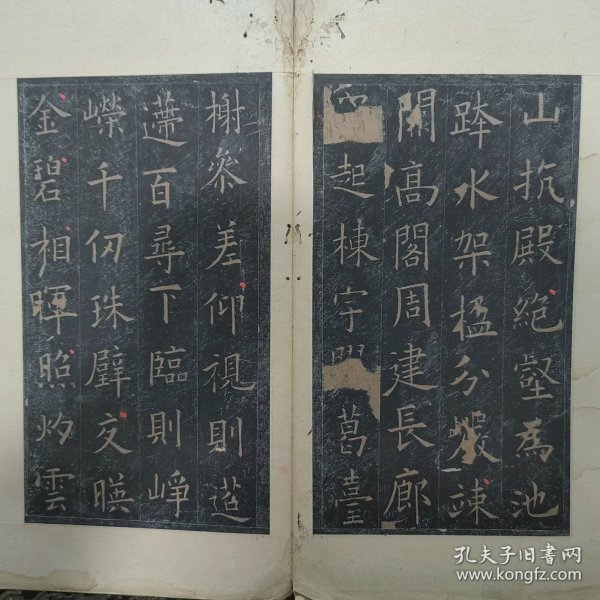 山抗殿絶壑為池
跨水架楹分巖竦
闕高閣周建長廊
起棟宇葛臺
榭參差仰視則迢
遰百尋下臨則崢
嶸千仞珠璧交暎
金碧相暉照灼雲
孔夫子旧书网
www.kongfz.com